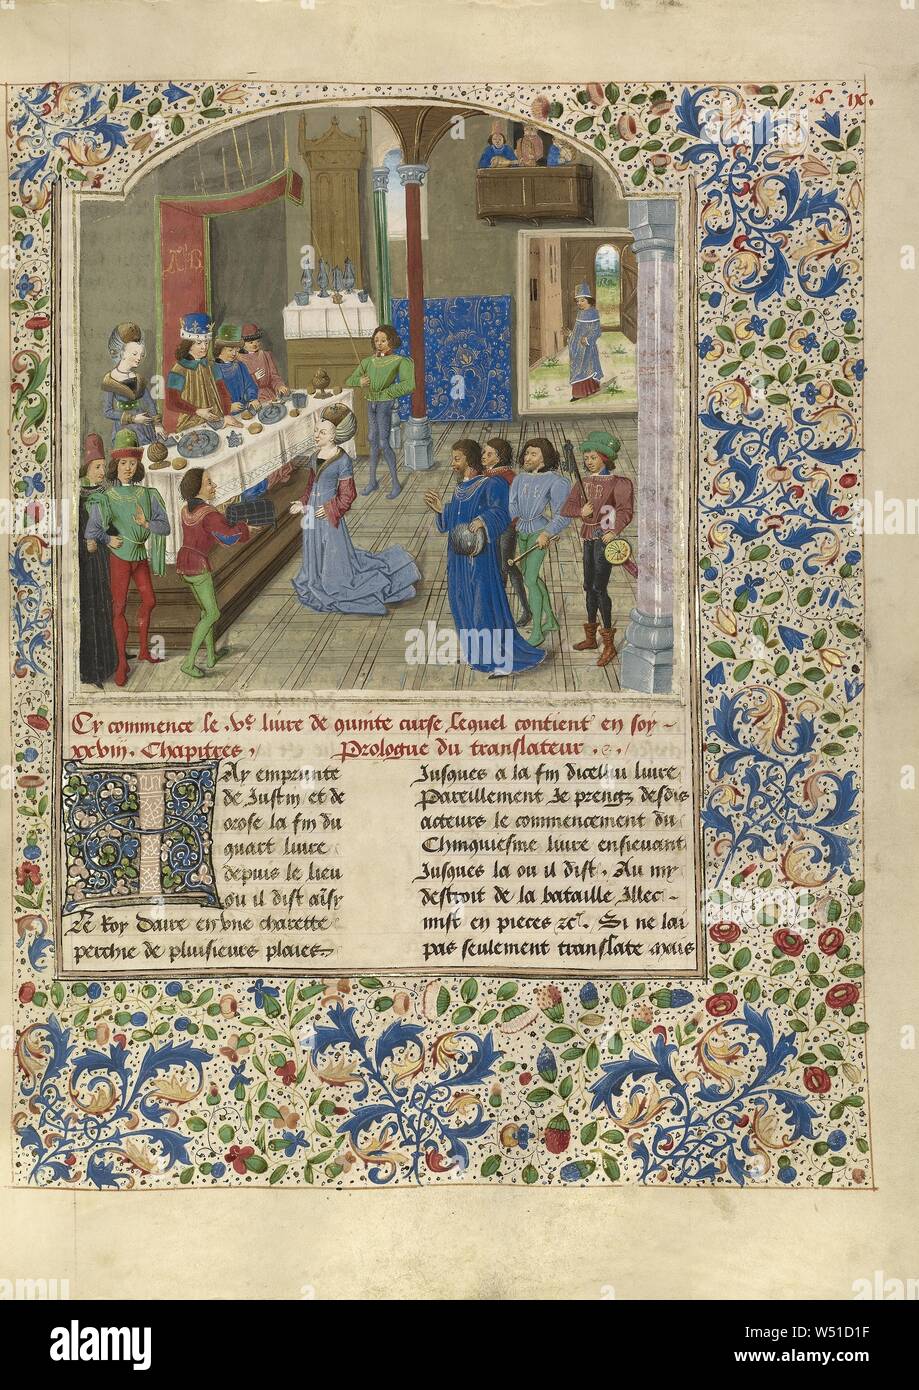 Cy commence le .Ve. liure de quinte curse lequel contient en soy
xxviii. Chapitres. Prologue du translateur.
IAy emprunte
de Iustin et de
orose la fin du
quart liure
depuis le lieu
ou il dist ainsy
Le Roy daire en vne charette
perchie de pluiseurs plaies
Iusques a la fin dicellui liure
Pareillement Ie prengz desdis
acteurs le commencement du
Chinquiesme liure ensieuant
Iusques la ou il dist. Au my
destroit de la bataille Illec
mist en pieces &c. Si ne lai
pas seulement translate mais
alamy
Image ID: W51D1F
www.alamy.com